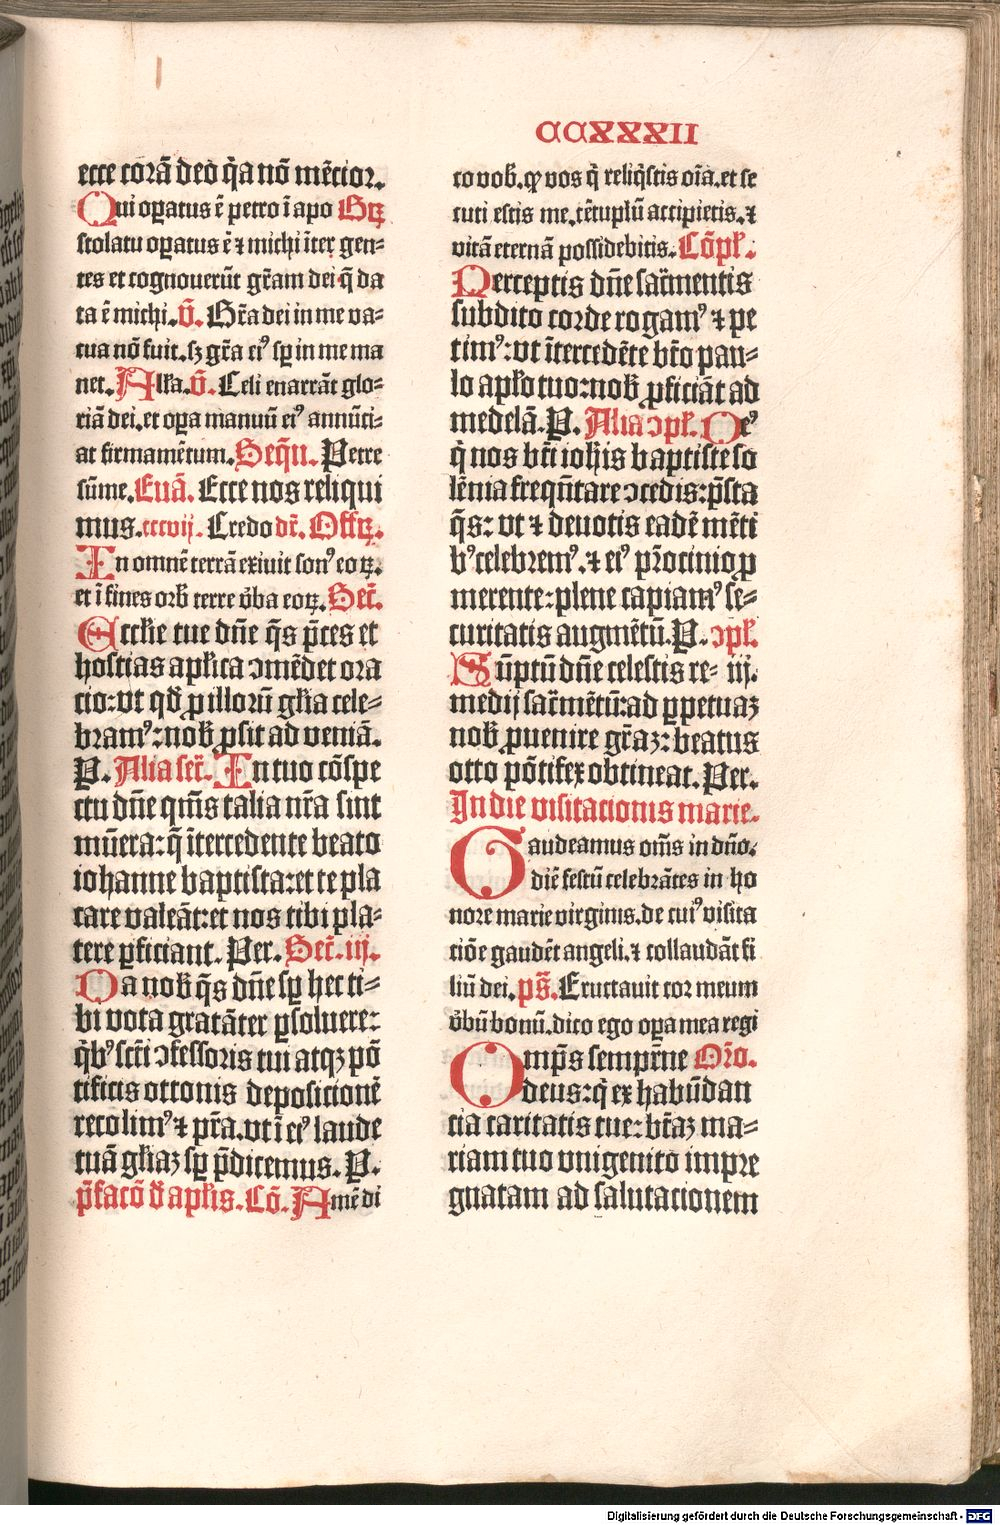 CCXXXII
ecce corā deo q̄a nō mēcior.
Qui oꝑatus ē petro ī apo Gꝝ
stolatu oꝑatus ē ⁊ michi īter gen⸗
tes et cognouerūt gr̄am dei q̄ da
ta ē michi. v̄. Gr̄a dei in me va⸗
cua nō fuit. sꝫ gr̄a eiꝰ sꝑ in me ma
net. Alľa. v̄. Celi enarrāt glo⸗
riā dei. et oꝑa manuū eiꝰ annūci⸗
at firmamētum. Seqn̄. Petre
sūme. Euā. Ecce nos reliqui
mus. cccvij. Credo dr̄. Offꝝ.
In omnē terrā exiuit sonꝰ eoꝝ.
et ī fines orb̄ terre v̄ba eoꝝ. Secr̄.
Eccľie tue dn̄e q̄s p̄ces et
hostias apľica ↄmēdet ora
cio: vt qđ ꝓ illorū gľia cele⸗
bramꝰ: nob̄ ꝓsit ad veniā.
P. Alia secr̄. In tuo cōspe
ctu dn̄e qm̄s talia nr̄a sint
mūera: q̄ ītercedente beato
iohanne baptista: et te pla
care valeāt: et nos tibi pla⸗
cere ꝑficiant. Per. Secr̄. iij.
Da nob̄ q̄s dn̄e sꝑ hec ti⸗
bi vota gratāter ꝑsoluere:
q̄bꝰ sct̄i ↄfessoris tui atqꝫ pō
tificis ottonis deposicionē
recolimꝰ ⁊ pr̄a. vt ī eiꝰ laude
tuā gľiaꝫ sꝑ p̄dicemus. P.
p̄facō đ apľis. Cō. Amē di
co vob̄. ꝙ vos q̄ reliq̄stis oīa. et se
cuti estis me. cētuplū accipietis. ⁊
vitā eternā possidebitis. Cōpľ.
Perceptis dn̄e sacr̄mentis
subdito corde rogamꝰ ⁊ pe
timꝰ: vt ītercedēte bt̄o pau⸗
lo apľo tuo: nob̄ ꝓficiāt ad
medelā. P. Alia ↄpľ. Deꝰ
q̄ nos bt̄i ioħis baptiste so
lēnia freqn̄tare ↄcedis: p̄sta
q̄s: vt ⁊ deuotis eadē mēti
bꝰ celebremꝰ. ⁊ eiꝰ pr̄ocinio ꝓ
merente: plene capiamꝰ se⸗
curitatis augmētū. P. ↄpľ.
Sūptū dn̄e celestis re⸗ iij.
medij sacr̄mētū: ad ꝑpetuaꝫ
nob̄ ꝓuenire gr̄aꝫ: beatus
otto pōtifex obtineat. Per.
In die visitacionis marie.
Gaudeamus om̄s in dn̄o.
diē festū celebrātes in ho
nore marie virginis. de cuiꝰ visita
ciōe gaudēt angeli. ⁊ collaudāt fi
liū dei. ps̄. Eructauit cor meum
v̄bū bonū. dico ego oꝑa mea regi
Omp̄s sempr̄ne Orō.
deus: q̄ ex habūdan
cia caritatis tue: bt̄aꝫ ma⸗
riam tuo vnigenito impre
gnatam ad salutacionem
Digitalisierung gefördert durch die Deutsche Forschungsgemeinschaft - DFG